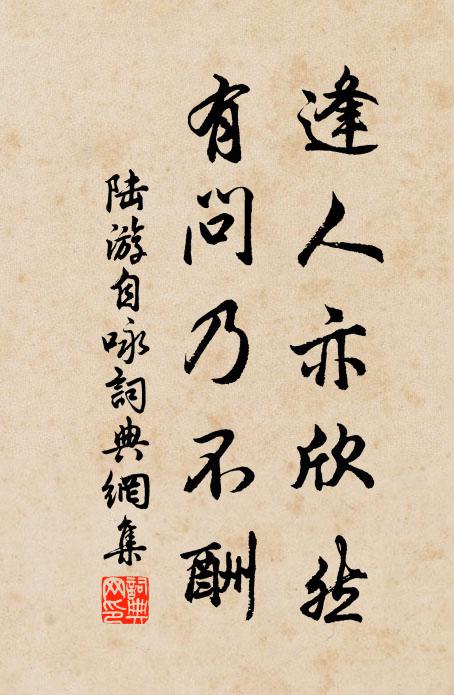 逢人亦欣然
有問乃不酬
陆游自咏詞典網集
詞典網印